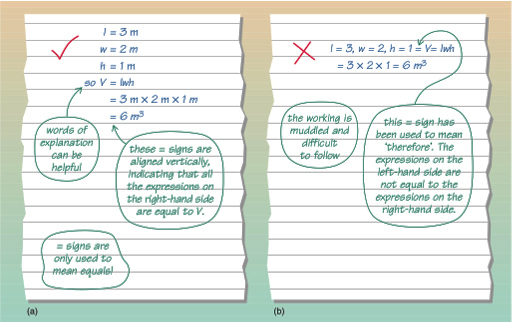 l = 3 m
w = 2 m
h = 1 m
so V = lwh
= 3 m × 2 m × 1 m
= 6 m³
words of
explanation
can be
helpful
these = signs are
aligned vertically,
indicating that all
the expressions on
the right-hand side
are equal to V.
= signs are
only used to
mean equals!
(a)
l = 3, w = 2, h = 1 = V= lwh
= 3 × 2 × 1 = 6 m³
the working is
muddled and
difficult
to follow
this = sign has
been used to mean
'therefore'. The
expressions on the
left-hand side are
not equal to the
expressions on the
right-hand side.
(b)